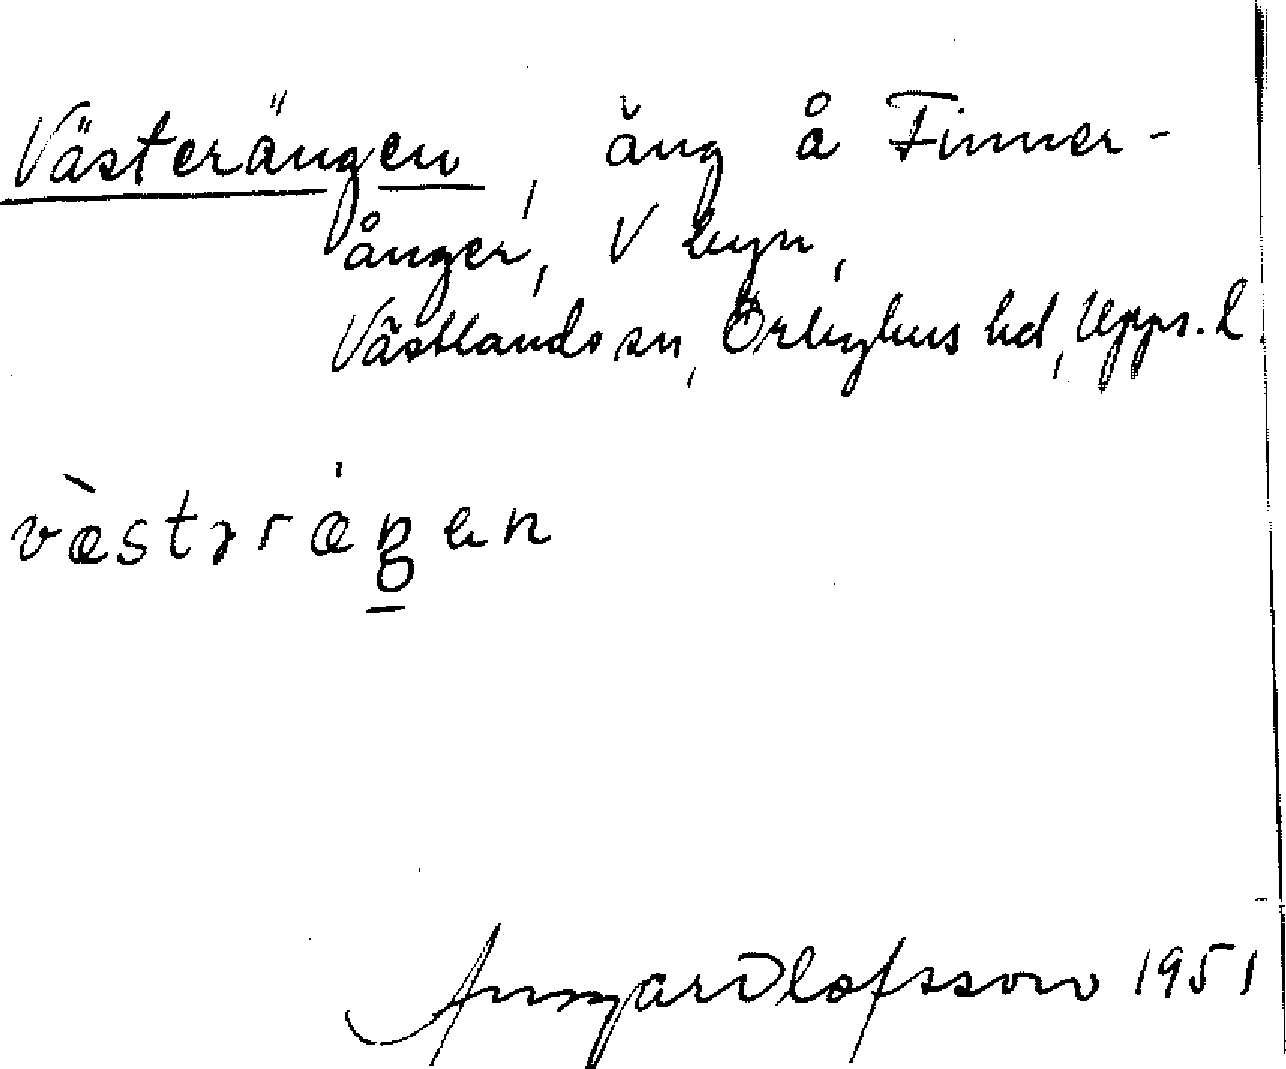 Västerängen, äng å Finner-
ånger, V byn,
Västlands sn, Örbyhus hd, Upps. l
væ̀stərǽŋen
Olofsson 1951